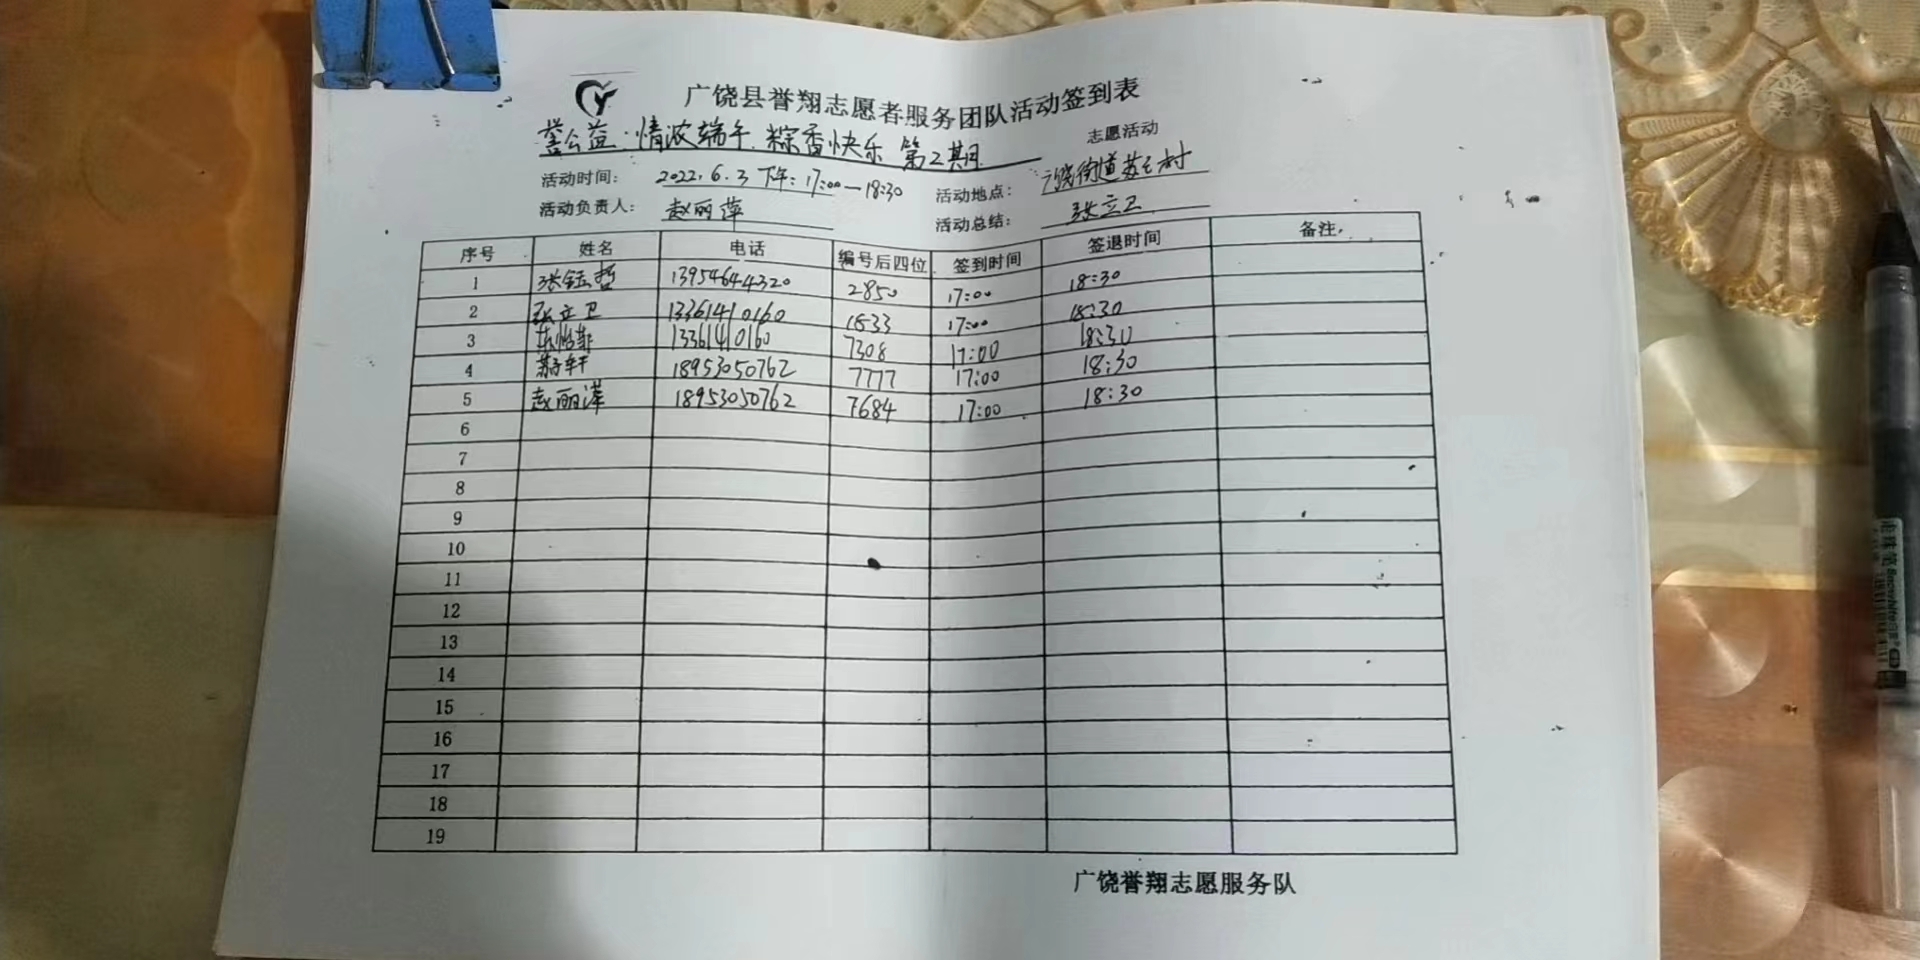 广饶县誉翔志愿者服务团队活动签到表
公益:情浓端午.粽香快乐 第2期 志愿活动
活动时间: 2022.6.3 下午:17:00—18:30 活动地点: 广饶街道苏王村
活动负责人: 赵丽萍 活动总结: 张立卫
序号 姓名 电话 编号后四位 签到时间 签退时间 备注
1 张钰哲 13954644320 2850 17:00 18:30
2 张立卫 13361410160 1833 17:00 18:30
3 13361410160 7308 17:00 18:30
4 轩 18953050762 7777 17:00 18:30
5 赵丽萍 18953050762 7684 17:00 18:30
6
7
8
9
10
11
12
13
14
15
16
17
18
19
广饶誉翔志愿服务队
走珠笔 Snowhite